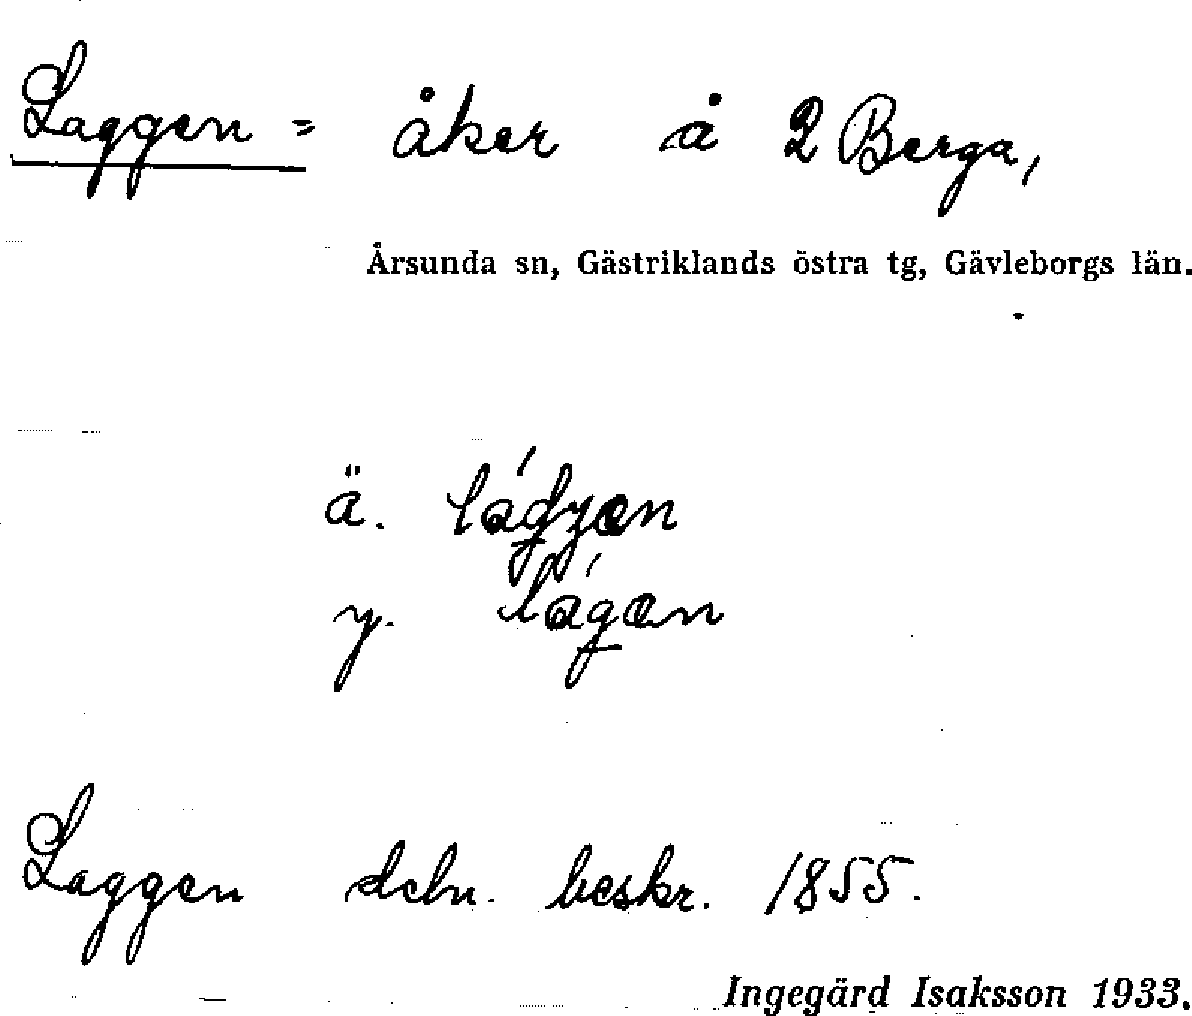 Laggen = åker å 2 Berga,
Årsunda sn, Gästriklands östra tg, Gävleborgs län.
ä.
y.
Laggen debn. beskr. 1855.
Ingegärd Isaksson 1933.